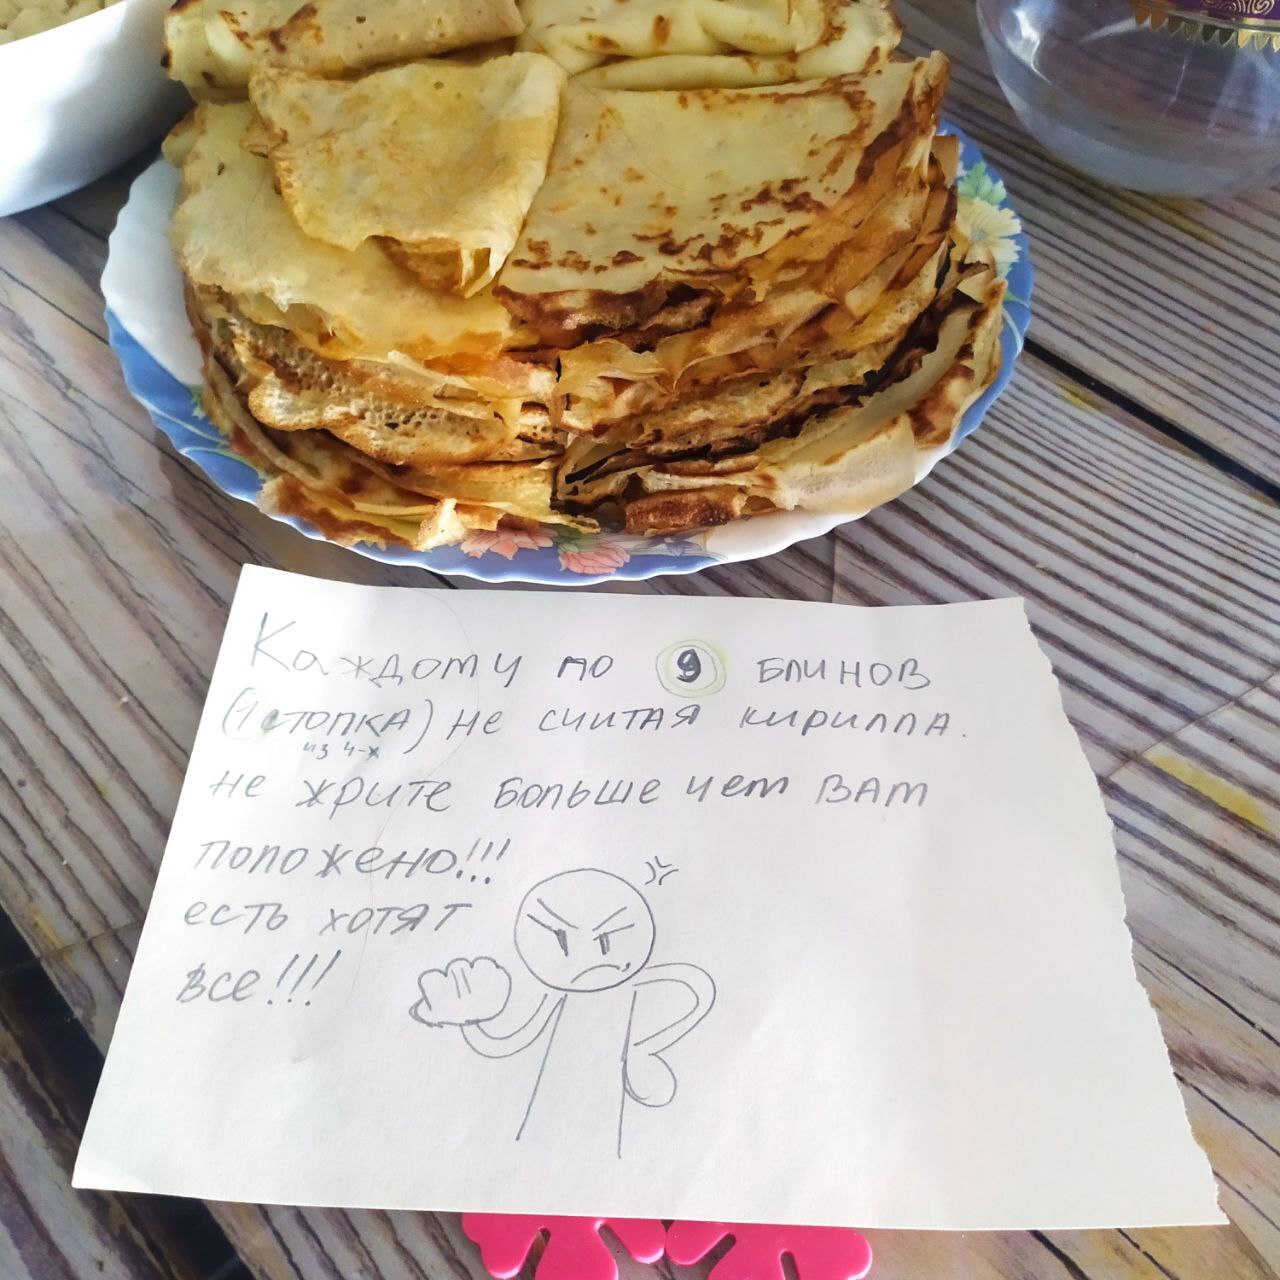 Каждому по 9 блинов
(1 стопка) не считая кирилла.
из 4-х
не жрите больше чем вам
положено!!!
есть хотят
все!!!